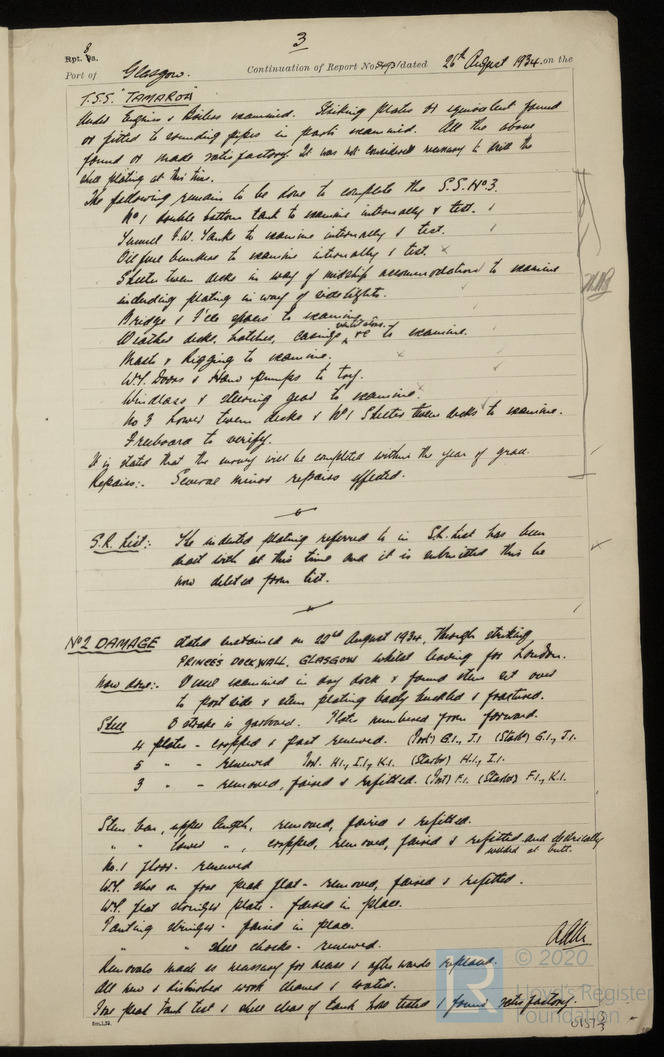 3
Rpt. 8a.
Port of Glasgow. Continuation of Report No 5493/ dated 26th August 1934. on the
T.S.S. "TAMAROA"
under Engines & Boilers examined. Striking plates or equivalent found
or fitted to sounding pipes in parts examined. All the above
found or made satisfactory. It was not considered necessary to drill the
shell plating at this time.
The following remains to be done to complete the S.S. No 3.
No 1 double bottom tank to examine internally & test.
Tunnel F.W. Tanks to examine internally & test.
Oil fuel bunkers to examine internally & test.
Shelter tween decks in way of midship accommodation to examine
including plating in way of sidelights.
Bridge & F'cle spaces to examine
Weather decks, hatches, casings, ventilators, &c to examine.
Masts & Rigging to examine.
W.T. Doors & Hand pumps to try.
Windlass & steering gear to examine.
No 3 Lower tween decks & No 1 Shelter tween decks to examine.
Freeboard to verify.
It is stated that the survey will be completed within the year of grace.
Repairs:- Several minor repairs effected.
S.R. List:- The indented plating referred to in S.R. List has been
dealt with at this time and it is submitted this be
now deleted from list.
No 2 DAMAGE stated sustained on 22nd August 1934, through striking
PRINCE'S DOCK WALL, GLASGOW whilst leaving for London.
Now done:- Vessel examined in dry dock & found stem set over
to port side & stem plating badly buckled & fractured.
Shell B strake is garboard. Plates numbered from forward.
4 plates - cropped & part renewed. (Port) G.1., J.1 (Starbd) G.1., J.1.
5 " - renewed Port. H.1., I.1., K.1. (Starbd) H.1., I.1.
3 " - removed, faired & refitted. (Port) F.1. (Starbd) F.1., K.1.
Stem bar, upper length, removed, faired & refitted.
" " lower " , cropped, removed, faired & refitted and electrically
welded at butt.
No. 1 floor - renewed
W.T. door on fore peak flat - removed, faired & refitted.
W.T. flat stringer plate - faired in place.
Panting stringer - faired in place.
" " shell chocks - renewed.
Removals made as necessary for access & afterwards replaced.
All new & disturbed work cleaned & coated.
Fore peak tank test & shell clear of tank hose tested & found satisfactory.
© 2020
Lloyd's Register
Foundation